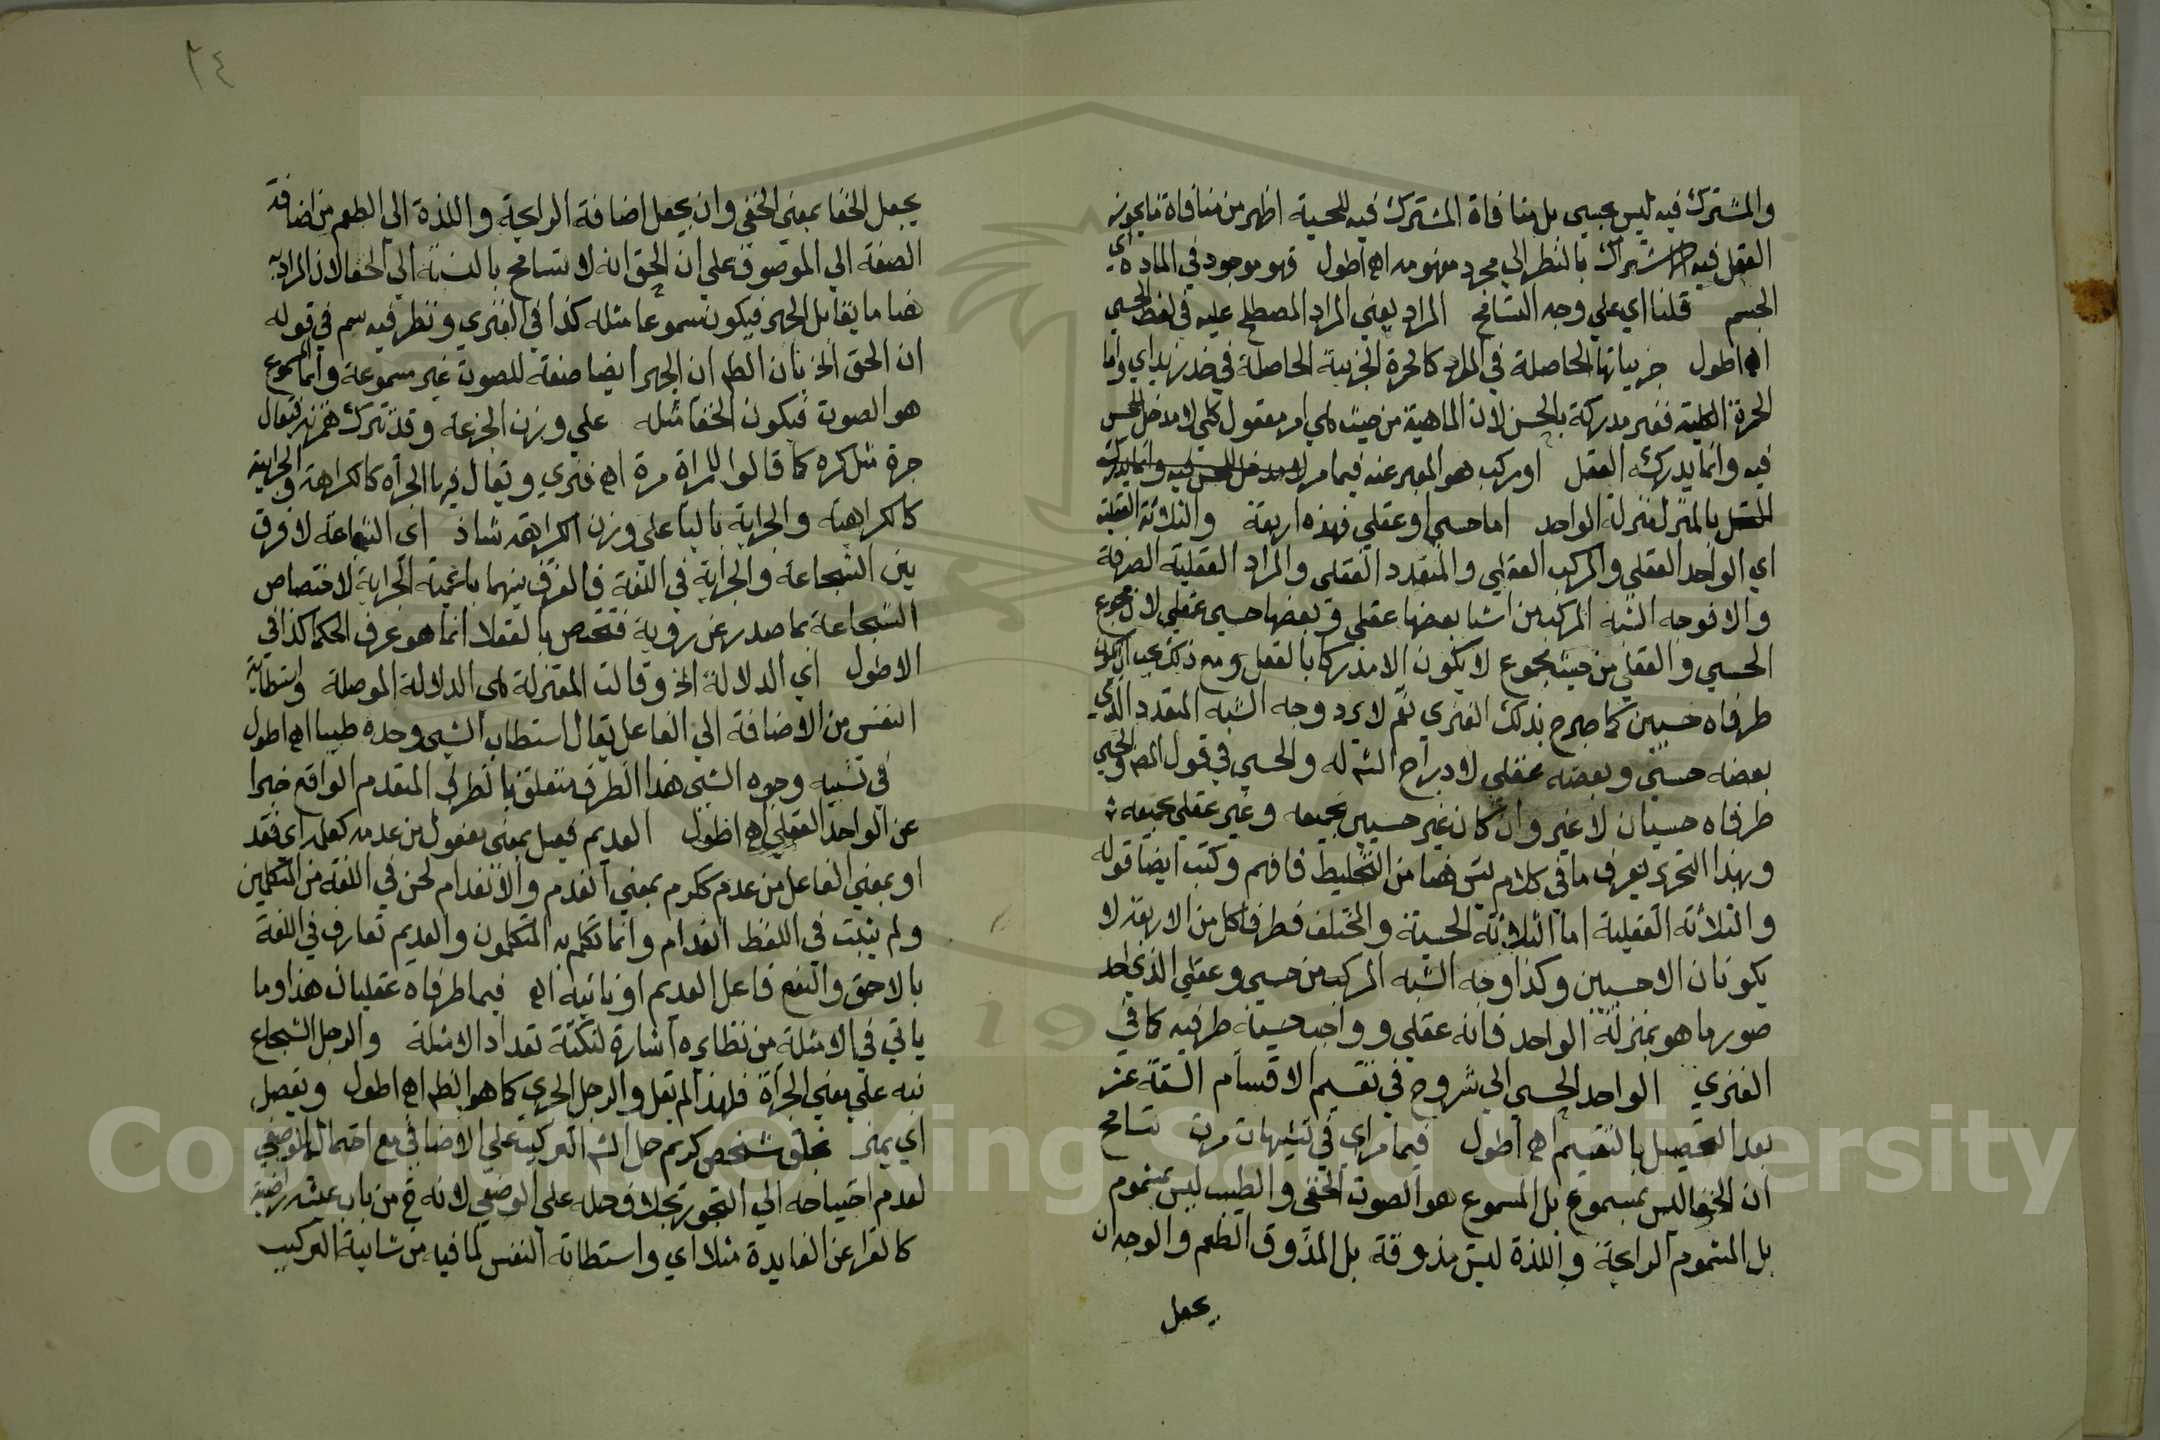 والمشترك فيه ليس بحسي بل منافاة المشترك فيه للحسية اظهر من منافاة ما يجوز
العقل فيه الاشتراك بالنظر الي مجرد مفهومه اهـ اطول فهو موجود في المادة اي
الجسم قلنا اي علي وجه التسامح المراد يعني المراد المصطلح عليه في لفظ الحسي
اهـ اطول جزيياتها الحاصلة في المواد كالحمرة الجزيية الحاصلة في خد زيد اي واما
الحمرة الكلية فغير مدركة بالحس لان الماهية من حيث هي امر معقول كلي لا مدخل للحس
فيه وانما يدركه العقل او مركب هو المعبر عنه فيما مر
بالمنزل منزلة الواحد اما حسي او عقلي فهذه اربعة والثلاثة العقلية
اي الواحد العقلي والمركب العقلي والمتعدد العقلي والمراد العقلية الصرفة
والا فوجه الشبه المركب من اشيا بعضها عقلي وبعضها حسي عقلي لان مجموع
الحسي والعقلي من حيث مجموع لا يكون الا مدركا بالعقل ومع ذلك يجب ان يكون
طرفاه حسيين كما صرح بذلك الفنري نعم لا يرد وجه الشبه المتعدد الذي
بعضه حسي وبعضه عقلي لادراج الشـ له والحسي في قول المصـ والحسي
طرفاه حسيان لا غير وان كان غير حسي بجميعه وغير عقلي بجميعه
وبهذا التحرير يعرف ما في كلام يس هنا من التخليط فافهم وكتب ايضا قوله
والثلاثة العقلية اما الثلاثة الحسية والمختلف فطرفا كل من الاربعة لا
يكونان الا حسيين وكذا وجه الشبه المركب من حسي وعقلي الذي احد
صور ما هو بمنزلة الواحد فانه عقلي وواجب حسية طرفيه كما في
الفنري الواحد الحسي الي شروع في تقسيم الاقسام الستة عشر
بعد التحصيل بالتقسيم اهـ اطول فيما مر اي في تشبيهات مرت تسامح
ان الخفا ليس بمسموع بل المسموع هو الصوت الخفي والطيب ليس بمشموم
بل المشموم الرايحة واللذة ليس مذوقة بل المذوق الطعم والوجه ان
يجعل
٢٤
يجعل الخفا بمعني الخفي وان يجعل اضافة الرايحة واللذة الي الطعم من اضافة
الصفة الي الموصوف علي ان الحق انه لا تسامح بالنسبة الي الخفا لان المراد به
هنا ما يقابل الجهر فيكون مسموعا مثله كذا في الفنري ونظر فيه سم في قوله
ان الحق الخ بان الظـ ان الجهر ايضا صفة للصوت غير مسموعة وانما المسموع
هو الصوت فيكون الخفا مثله علي وزن الجرعة وقد تترك همزته فيقال
جرة مثل كره كما قالوا للمراة مرة اهـ فنري ويقال فيها الجراة كالكراهة والجراية
كالكراهية والجراية باليا علي وزن الكراهة شاذ اي الشجاعة لا فرق
بين الشجاعة والجراية في اللغة فالفرق بينهما باعمية الجراية لاختصاص
الشجاعة بما صدر عن روية فتختص بالعقلا انما هو عرف الحكما كذا في
الاطول اي الدلالة الخ وقالت المعتزلة هي الدلالة الموصلة واستطابة
النفس من الاضافة الي الفاعل يقال استطاب الشي وجده طيبا اهـ اطول
في تشبيه وجود الشي هذا الظرف متعلق بالظرف المتقدم الواقع خبرا
عن الواحد العقلي اهـ اطول العديم فعيل بمعني مفعول من عدمه كعلمه اي فقد
او بمعني الفاعل من عدم ككرم بمعني انعدم والانعدام لحن في اللغة من المتكلمين
ولم يثبت في اللفظ انعدام وانما تكلم به المتكلمون والعديم تعارف في اللغة
بالاحمق والنفع فاعل العديم او نايبه اهـ فيما طرفاه عقليان هذا وما
ياتي في الامثلة من نظايره اشارة لنكتة تعداد الامثلة والرجل الشجاع
نبه علي معني الجراة فلهذا لم يقل والرجل الجري كما هو الظـ اهـ اطول ويفصل
اي يميز بخلق شخص كريم حمل الشـ التركيب علي الاضافي مع احتمال الوصفي
لعدم احتياجه الي التجوز بخلاف حمله علي الوصفي لانه ح من باب عيشة راضية
كالعرا عن الفايدة مثلا اي واستطابة النفس لما فيه من شايبة التركيب